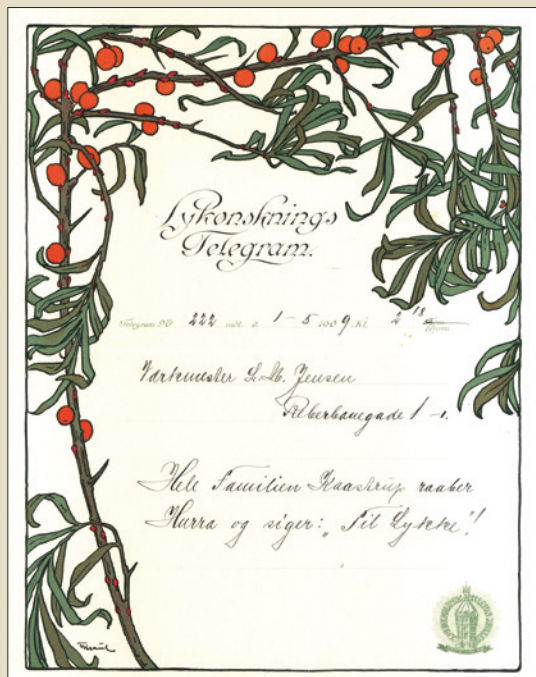 Lykønsknings
Telegram.
Telegram No 222 indl. d. 1-5 1909. Kl. 2 18
Værkmester L. M. Jensen
Reberbanegade 1
Hele Familien Kaastrup raaber
Hurra og siger: „Til Lykke"!